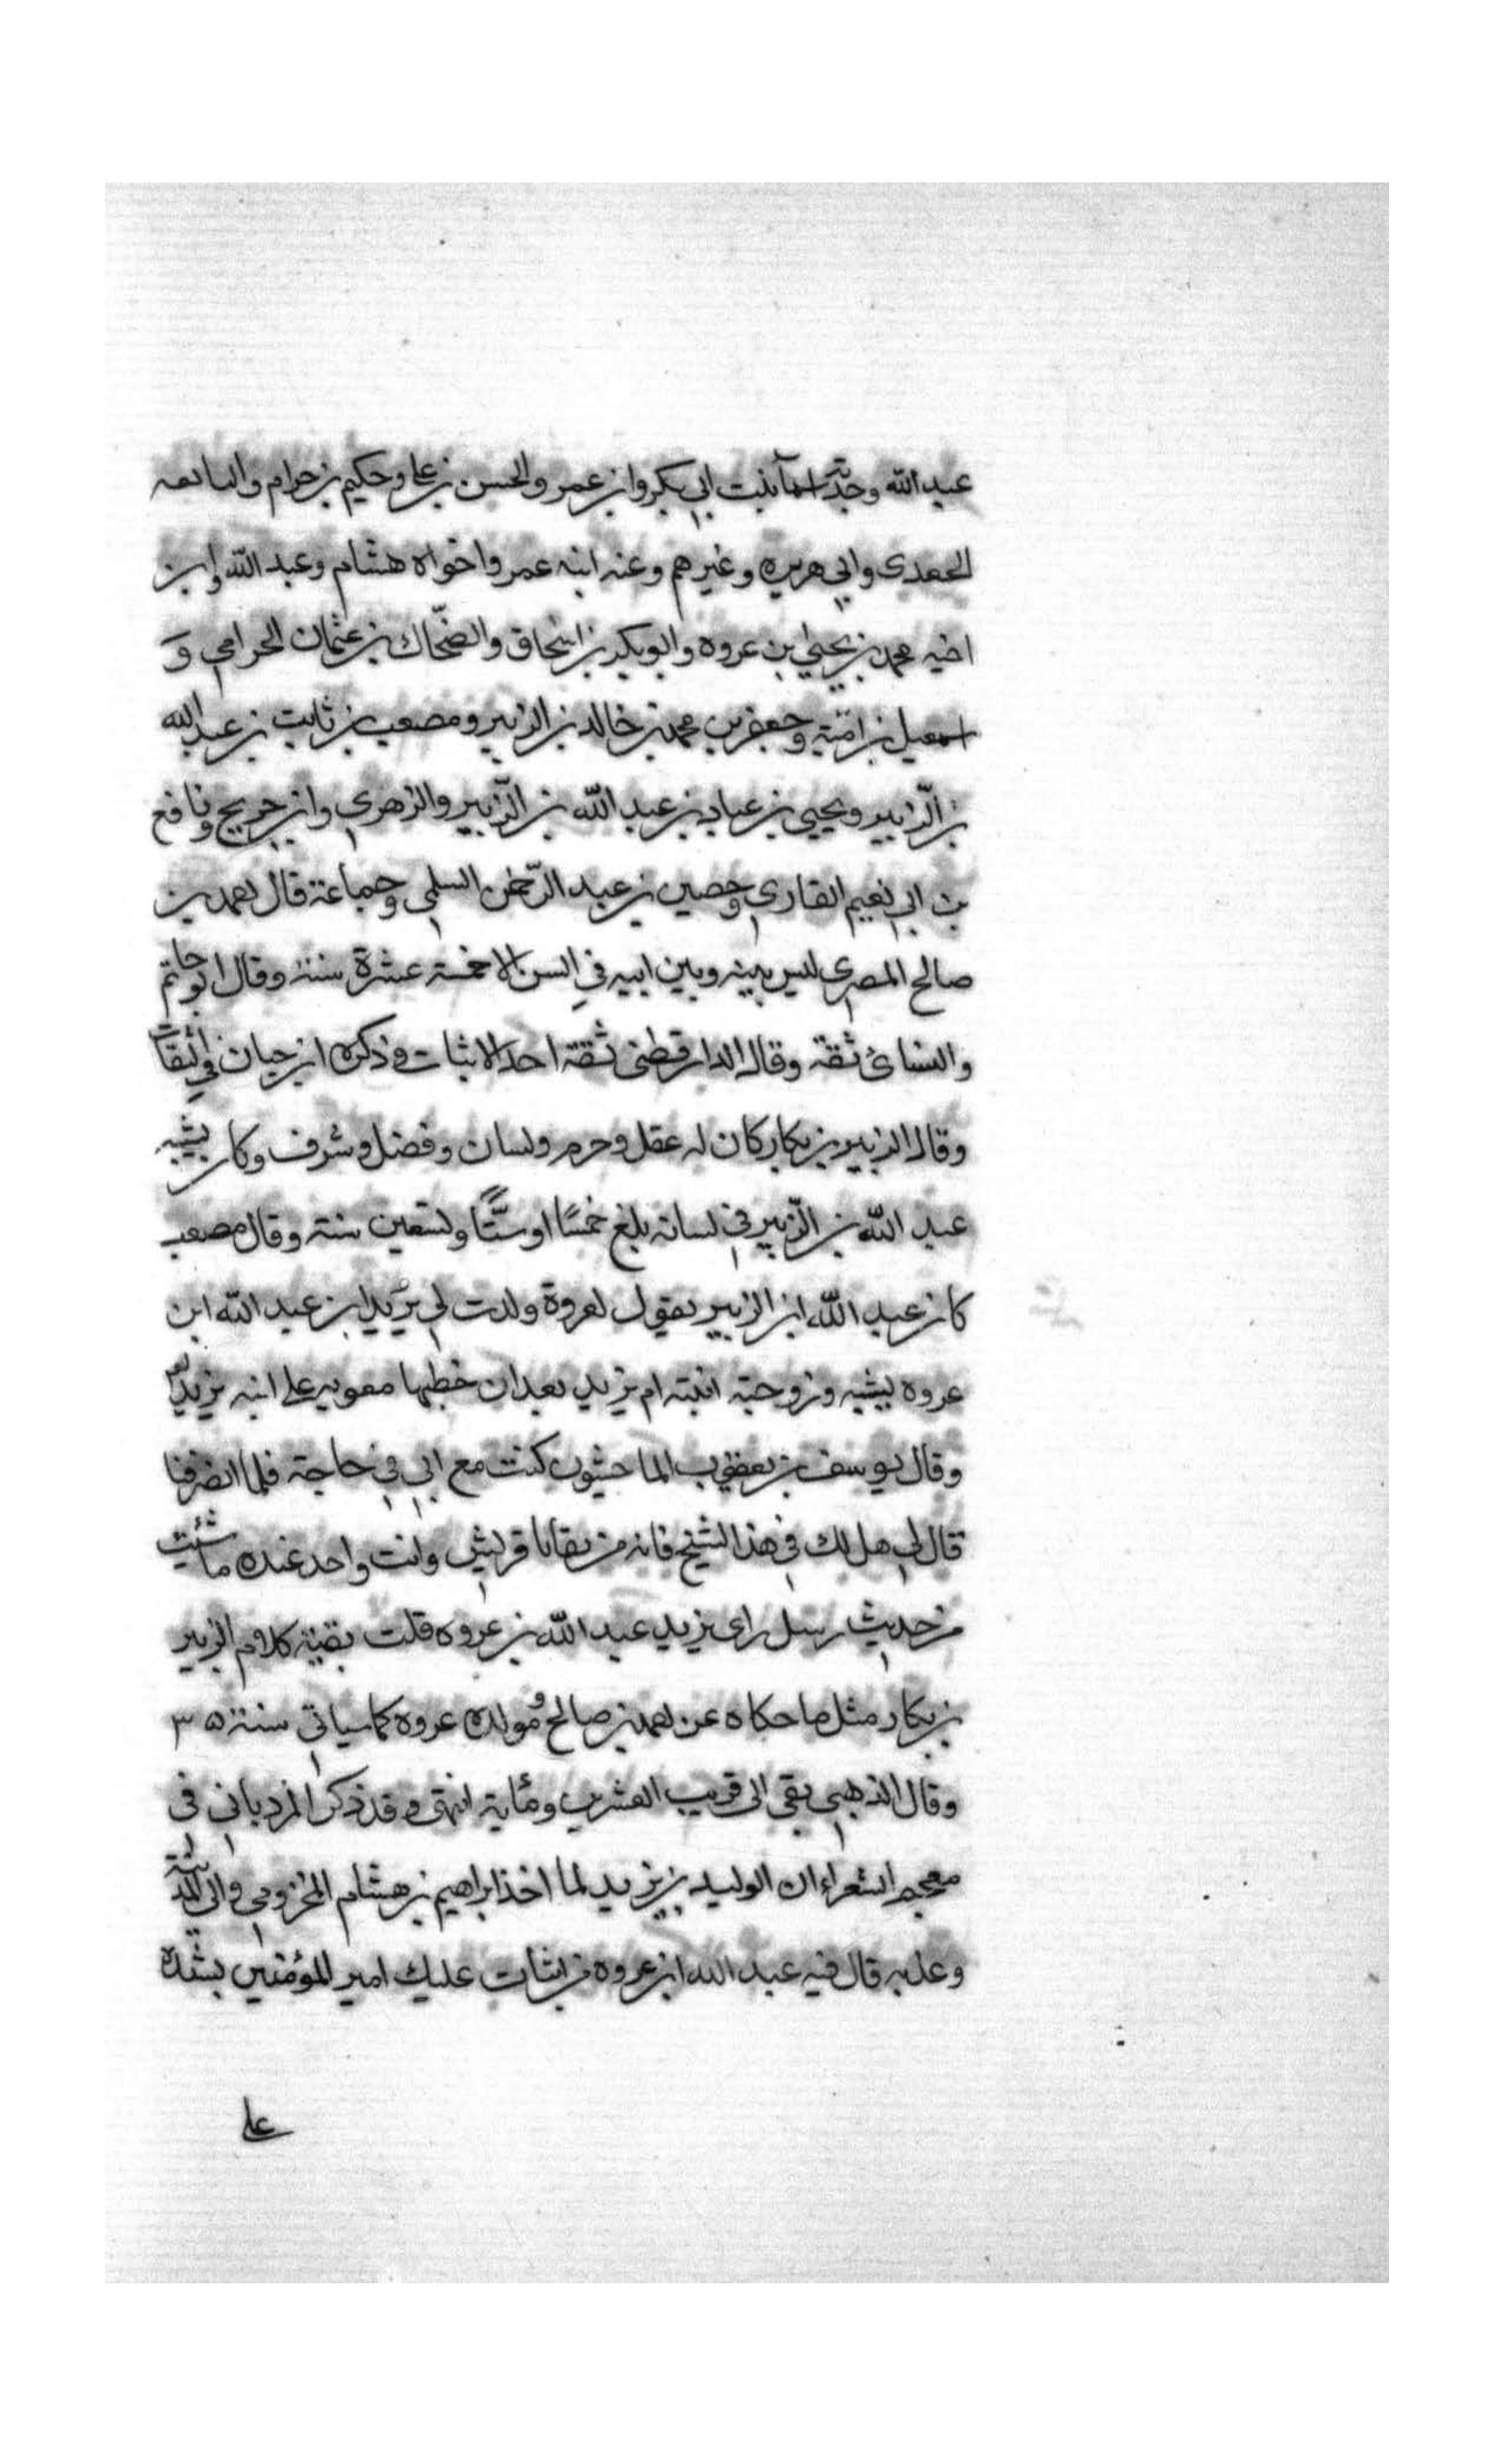 عبد الله وجدته اسمآ بنت ابي بكر وابن عمر والحسن بن علي وحكيم بن حزام والنابغه
الجعدى وابي هريره وغيرهم وعنه ابنه عمر واخواه هشام وعبد الله وابن
اخيه محمد بن يحيى بن عروه وابو بكر بن اسحاق والضحّاك بن عثمان الحزامي و
اسمعيل بن اميّة وجعفر بن محمد بن خالد بن الزبير ومصعب بن ثابت بن عبد الله
بن الزّبير ويحيى بن عباد بن عبد الله بن الزّبير والزهري وابن جريج ونافع
بن ابي نعيم القاري وحصين بن عبد الرّحمن السلمي وجماعة قال احمد بن
صالح المصري ليس بينه وبين ابيه في السن الا خمسة عشرة سنة وقال ابو حاتم
والنسائ ثقة وقال الدارقطنى ثقة احد الاثبات وذكره ابن حبان في الثقات
وقال الزبير بن بكار كان له عقل وحزم ولسان وفضل وشرف وكان يشبه
عبد الله بن الزّبير في لسانه بلغ خمسًا او ستًّا وتسعين سنة وقال مصعب
كان عبد الله ابن الزبير يقول لعروة ولدت لي يريد ابن عبد الله ابن
عروه يشبه وزوجته ابنته ام يزيد بعد ان خطبها معويه على ابنه يزيد
وقال يوسف بن يعقوب الماجشون كنت مع ابي في حاجة فلما انصرفنا
قال لي هل لك في هذا الشيخ فانه من بقايا قريش وانت واحد عنده ما شئت
من حديث رسل راى يزيد عبد الله بن عروه قلت بقية كلام الزبير
بن بكار مثل ما حكاه عن احمد بن صالح ومولده عروة كما سياتي سنة ٣٥
وقال الذهبي بقى الى قريب العشرين ومايه انتهى وقد ذكر المرزباني في
معجم الشعراء ان الوليد بن يزيد لما اخذ ابراهيم بن هشام المخزومي والى المدينة
وعذبه قال فيه عبد الله ابن عروه بن اثبات عليك امير المؤمنين بشدة
على